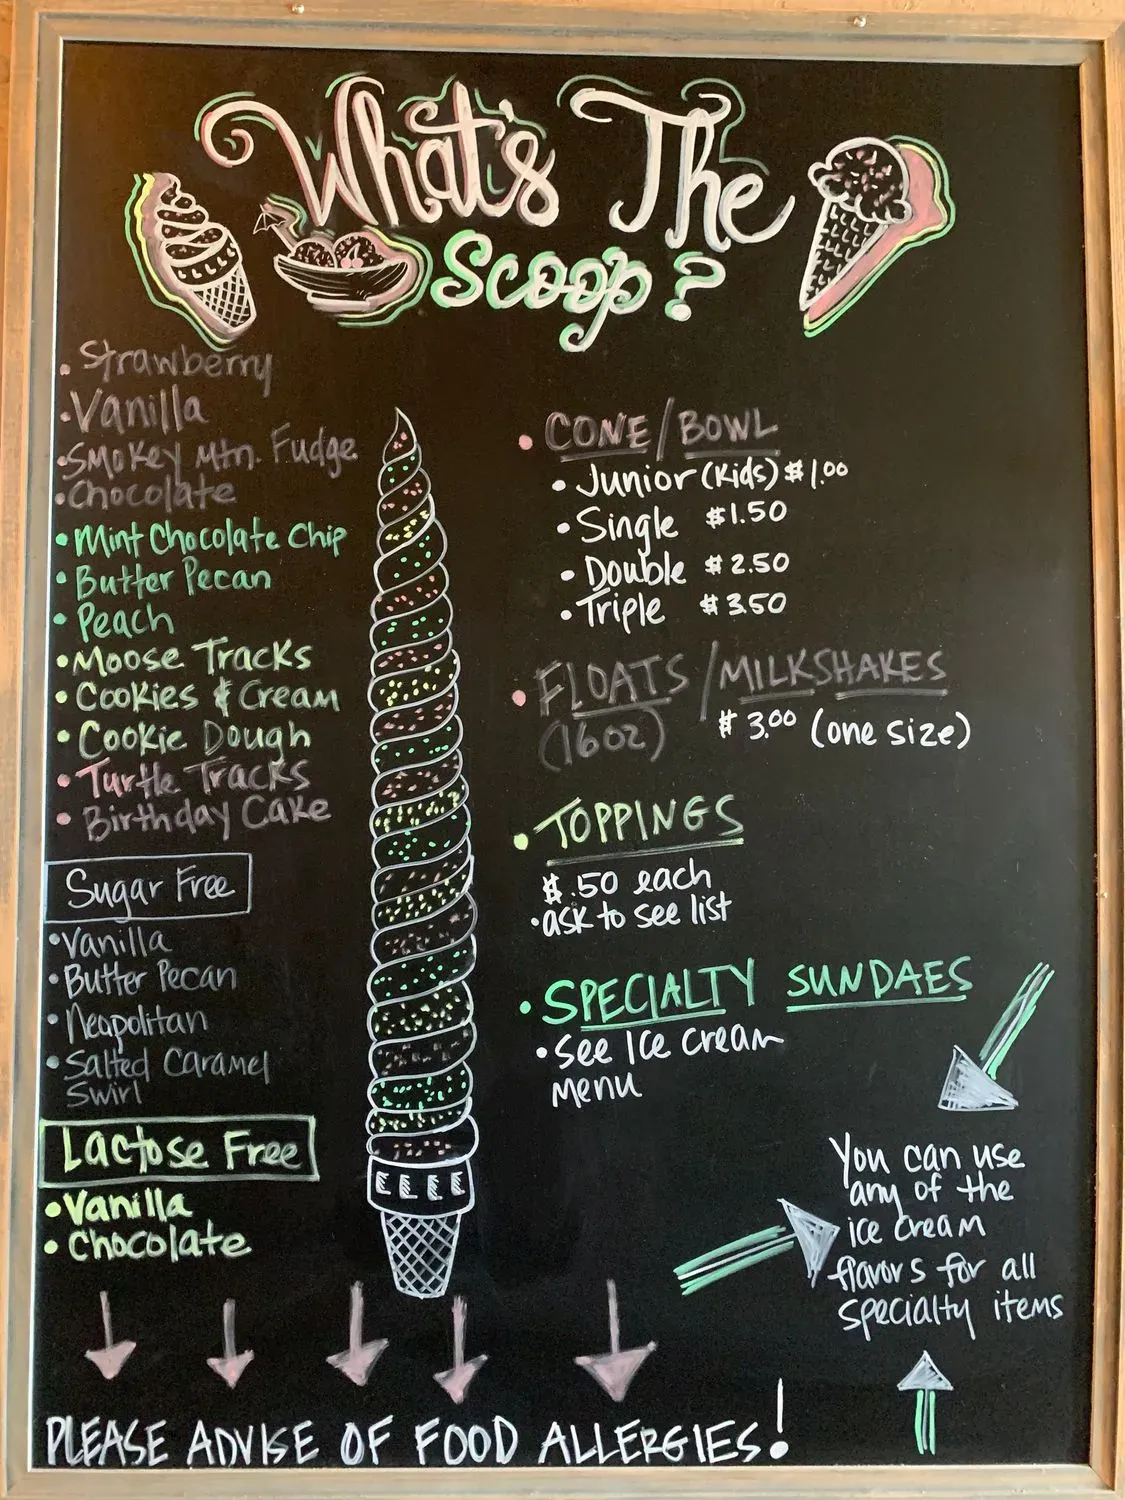 What's The
Scoop?
• Strawberry
• Vanilla
• Smokey Mtn. Fudge
• Chocolate
• Mint Chocolate Chip
• Butter Pecan
• Peach
• Moose Tracks
• Cookies & Cream
• Cookie Dough
• Turtle Tracks
• Birthday Cake
Sugar Free
• Vanilla
• Butter Pecan
• Neapolitan
• Salted Caramel
Swirl
Lactose Free
• Vanilla
• Chocolate
• CONE/BOWL
• Junior (Kids) $1.00
• Single $1.50
• Double $2.50
• Triple $3.50
• FLOATS/MILKSHAKES
(16oz) $3.00 (one size)
• TOPPINGS
$.50 each
• ask to see list
• SPECIALTY SUNDAES
• See Ice Cream
Menu
You can use
any of the
ice cream
flavors for all
specialty items
PLEASE ADVISE OF FOOD ALLERGIES!